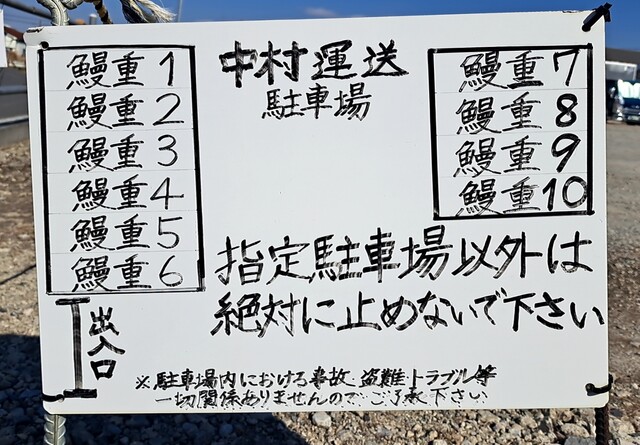 鰻重1
鰻重2
鰻重3
鰻重4
鰻重5
鰻重6
出入口
中村運送
駐車場
鰻重7
鰻重8
鰻重9
鰻重10
指定駐車場以外は
絶対に止めないで下さい
※駐車場内における事故、盗難、トラブル等
一切関係ありませんのでご了承下さい